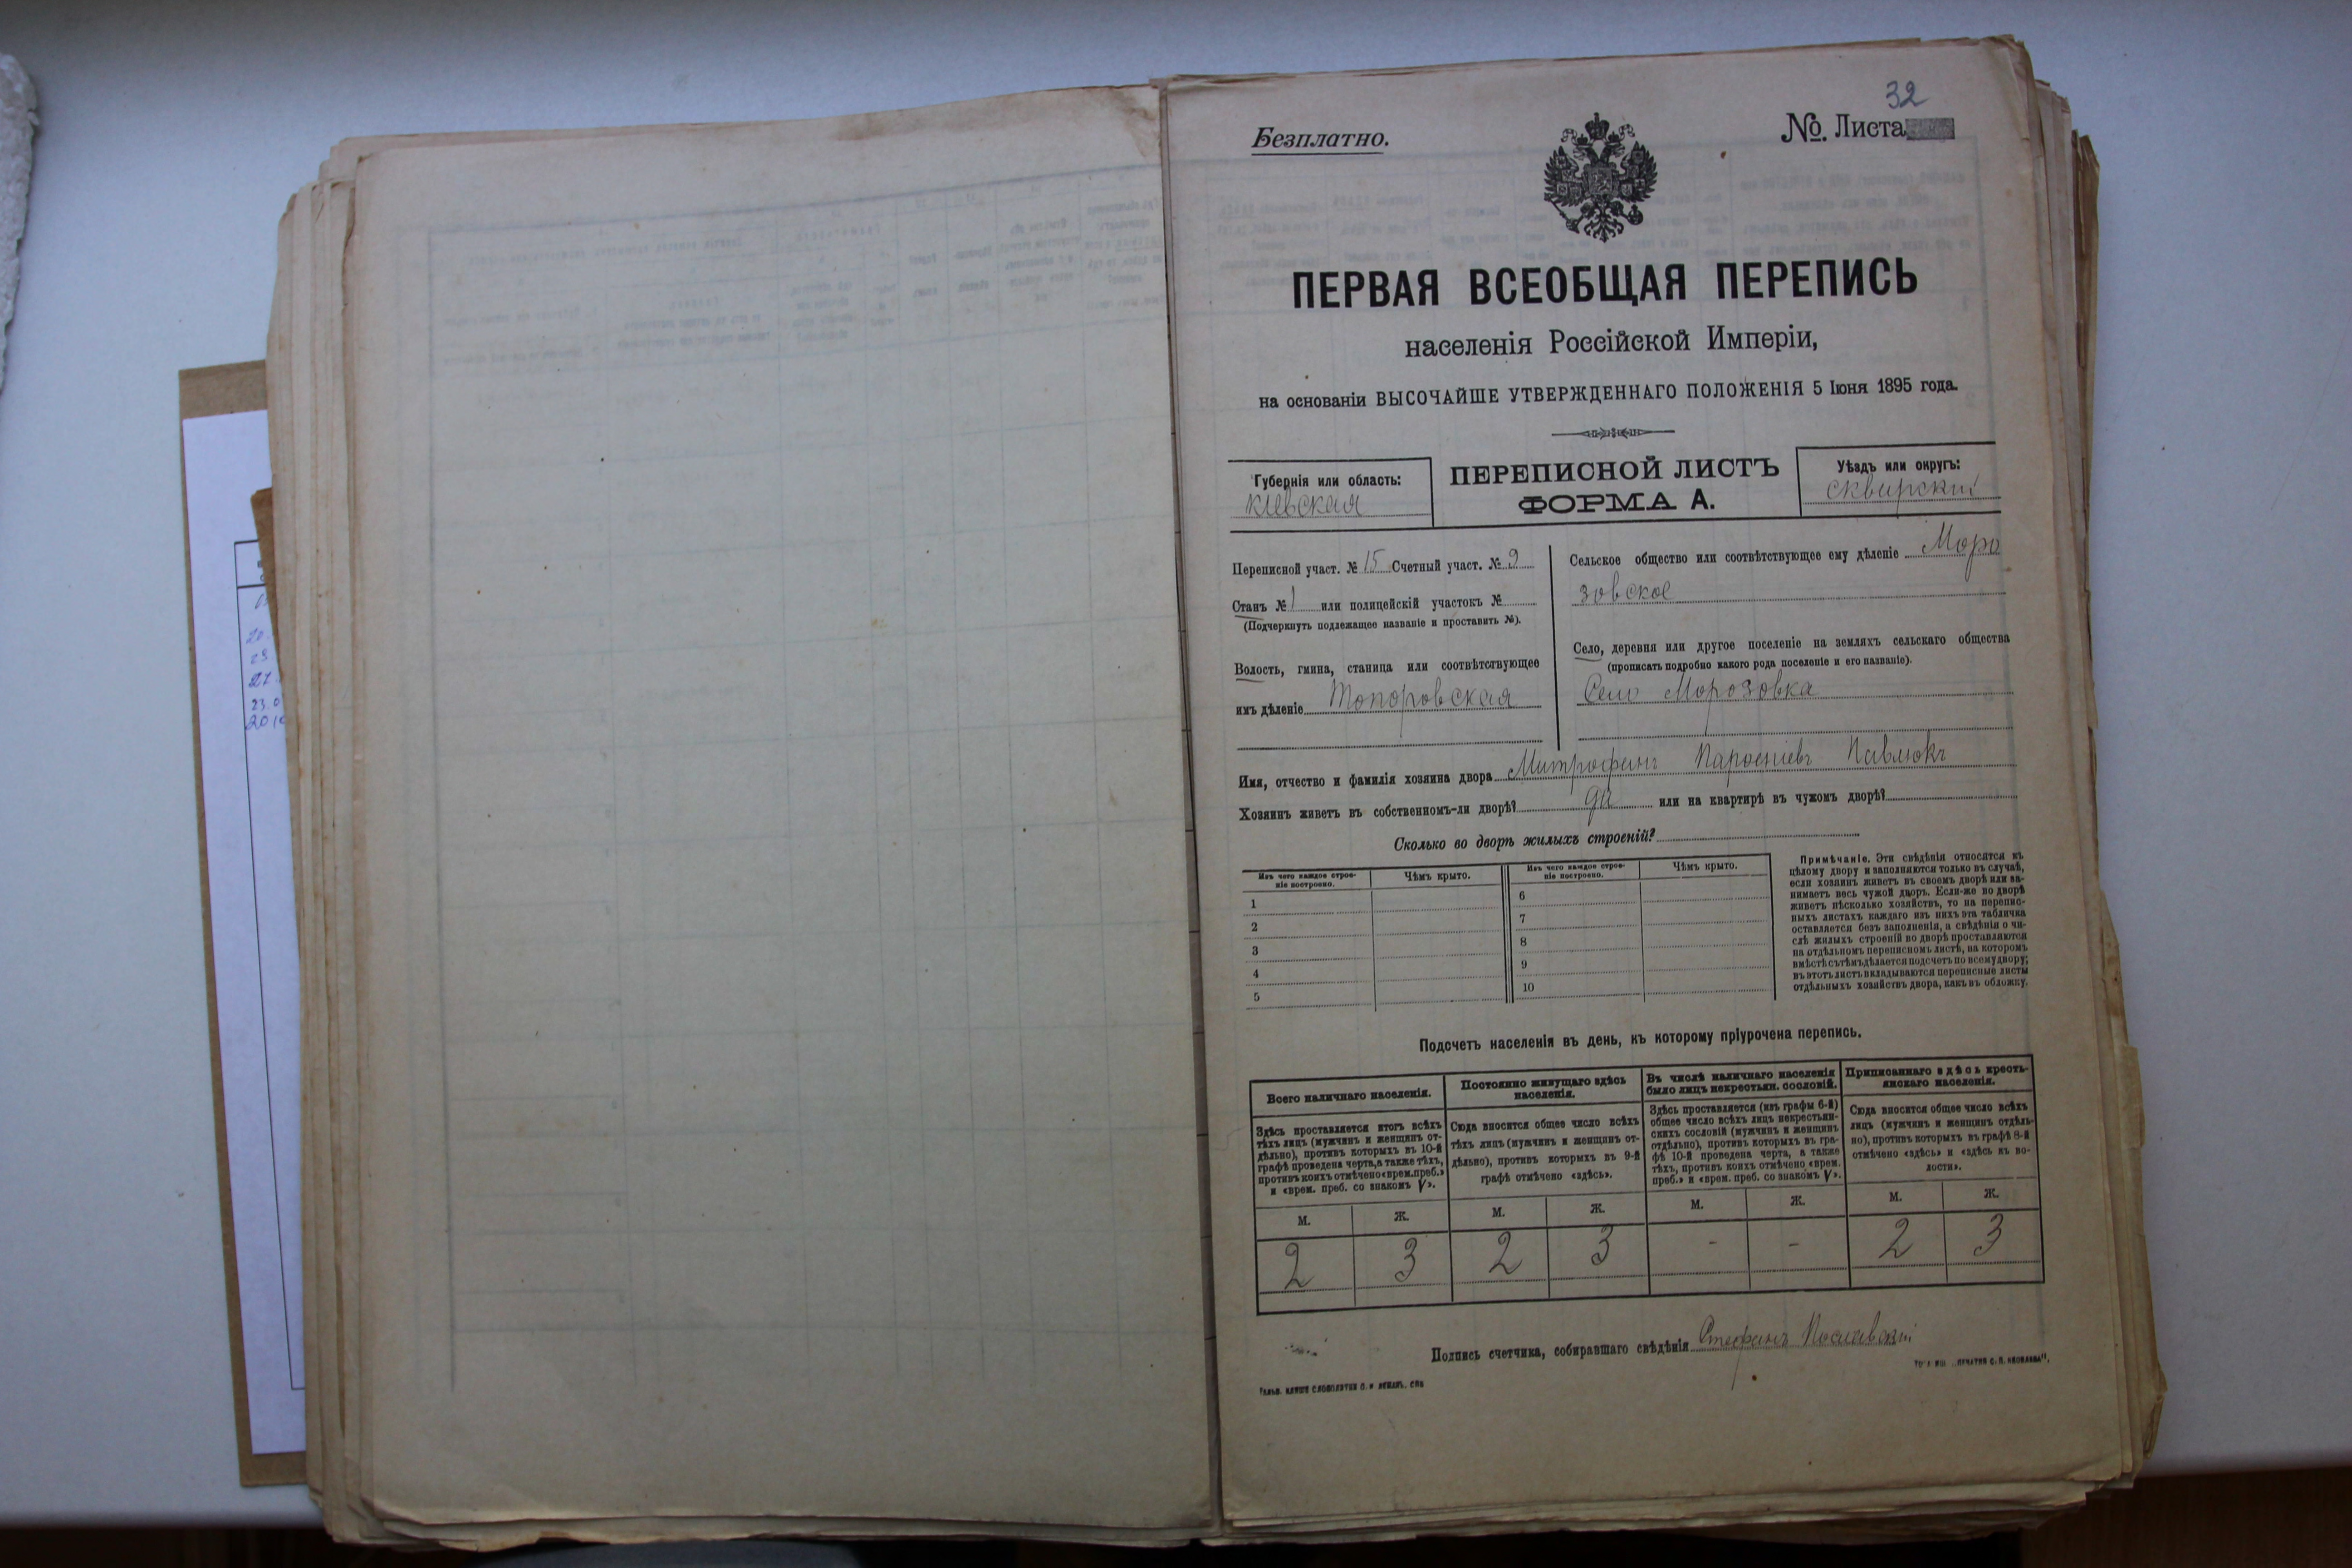 32
Безплатно.
№. Листа
ПЕРВАЯ ВСЕОБЩАЯ ПЕРЕПИСЬ
населенія Россійской Имперіи,
на основаніи ВЫСОЧАЙШЕ УТВЕРЖДЕННАГО ПОЛОЖЕНІЯ 5 Іюня 1895 года.
Губернія или область:
кіевская
ПЕРЕПИСНОЙ ЛИСТЪ
ФОРМА А.
Уѣздъ или округъ:
сквирскій
Переписной участ. № 15 Счетный участ. № 9
Станъ № 1 или полицейскій участокъ №
(Подчеркнуть подлежащее названіе и проставить №).
Волость, гмина, станица или соотвѣтствующее
имъ дѣленіе Топоровская
Сельское общество или соотвѣтствующее ему дѣленіе Моро
зовское
Село, деревня или другое поселеніе на земляхъ сельскаго общества
(прописать подробно какого рода поселеніе и его названіе).
Село Морозовка
Имя, отчество и фамилія хозяина двора Митрофанъ Пароеніевъ Павлюкъ
Хозяинъ живетъ въ собственномъ-ли дворѣ? да или на квартирѣ въ чужомъ дворѣ?
Сколько во дворѣ жилыхъ строеній?
Изъ чего каждое строе-
ніе построено.
Чѣмъ крыто.
Изъ чего каждое строе-
ніе построено.
Чѣмъ крыто.
1 6
2 7
3 8
4 9
5 10
Примѣчаніе. Эти свѣдѣнія относятся къ
цѣлому двору и заполняются только въ случаѣ,
если хозяинъ живетъ въ своемъ дворѣ или за-
нимаетъ весь чужой дворъ. Если-же во дворѣ
живетъ нѣсколько хозяйствъ, то на перепис-
ныхъ листахъ каждаго изъ нихъ эта табличка
оставляется безъ заполненія, а свѣдѣнія о чи-
слѣ жилыхъ строеній во дворѣ проставляются
на отдѣльномъ переписномъ листѣ, на которомъ
вмѣстѣ съ тѣмъ дѣлается подсчетъ по всему двору;
въ этотъ листъ вкладываются переписные листы
отдѣльныхъ хозяйствъ двора, какъ въ обложку.
Подсчетъ населенія въ день, къ которому пріурочена перепись.
Всего наличнаго населенія.
Здѣсь проставляется итогъ всѣхъ
тѣхъ лицъ (мужчинъ и женщинъ от-
дѣльно), противъ которыхъ въ 10-й
графѣ проведена черта, а также тѣхъ,
противъ коихъ отмѣчено «врем. преб.»
и «врем. преб. со знакомъ V».
Постоянно живущаго здѣсь
населенія.
Сюда вносится общее число всѣхъ
тѣхъ лицъ (мужчинъ и женщинъ от-
дѣльно), противъ которыхъ въ 9-й
графѣ отмѣчено «здѣсь».
Въ числѣ наличнаго населенія
было лицъ некрестьян. сословій.
Здѣсь проставляется (изъ графы 6-й)
общее число всѣхъ лицъ некрестьян-
скихъ сословій (мужчинъ и женщинъ
отдѣльно), противъ которыхъ въ гра-
фѣ 10-й проведена черта, а также
тѣхъ, противъ коихъ отмѣчено «врем.
преб.» и «врем. преб. со знакомъ V».
Приписаннаго здѣсь кресть-
янскаго населенія.
Сюда вносится общее число всѣхъ
лицъ (мужчинъ и женщинъ отдѣль-
но), противъ которыхъ въ графѣ 8-й
отмѣчено «здѣсь» и «здѣсь въ во-
лости».
М. Ж. М. Ж. М. Ж. М. Ж.
2 3 2 3 - - 2 3
Подпись счетчика, собиравшаго свѣдѣнія Стефанъ Пославскій